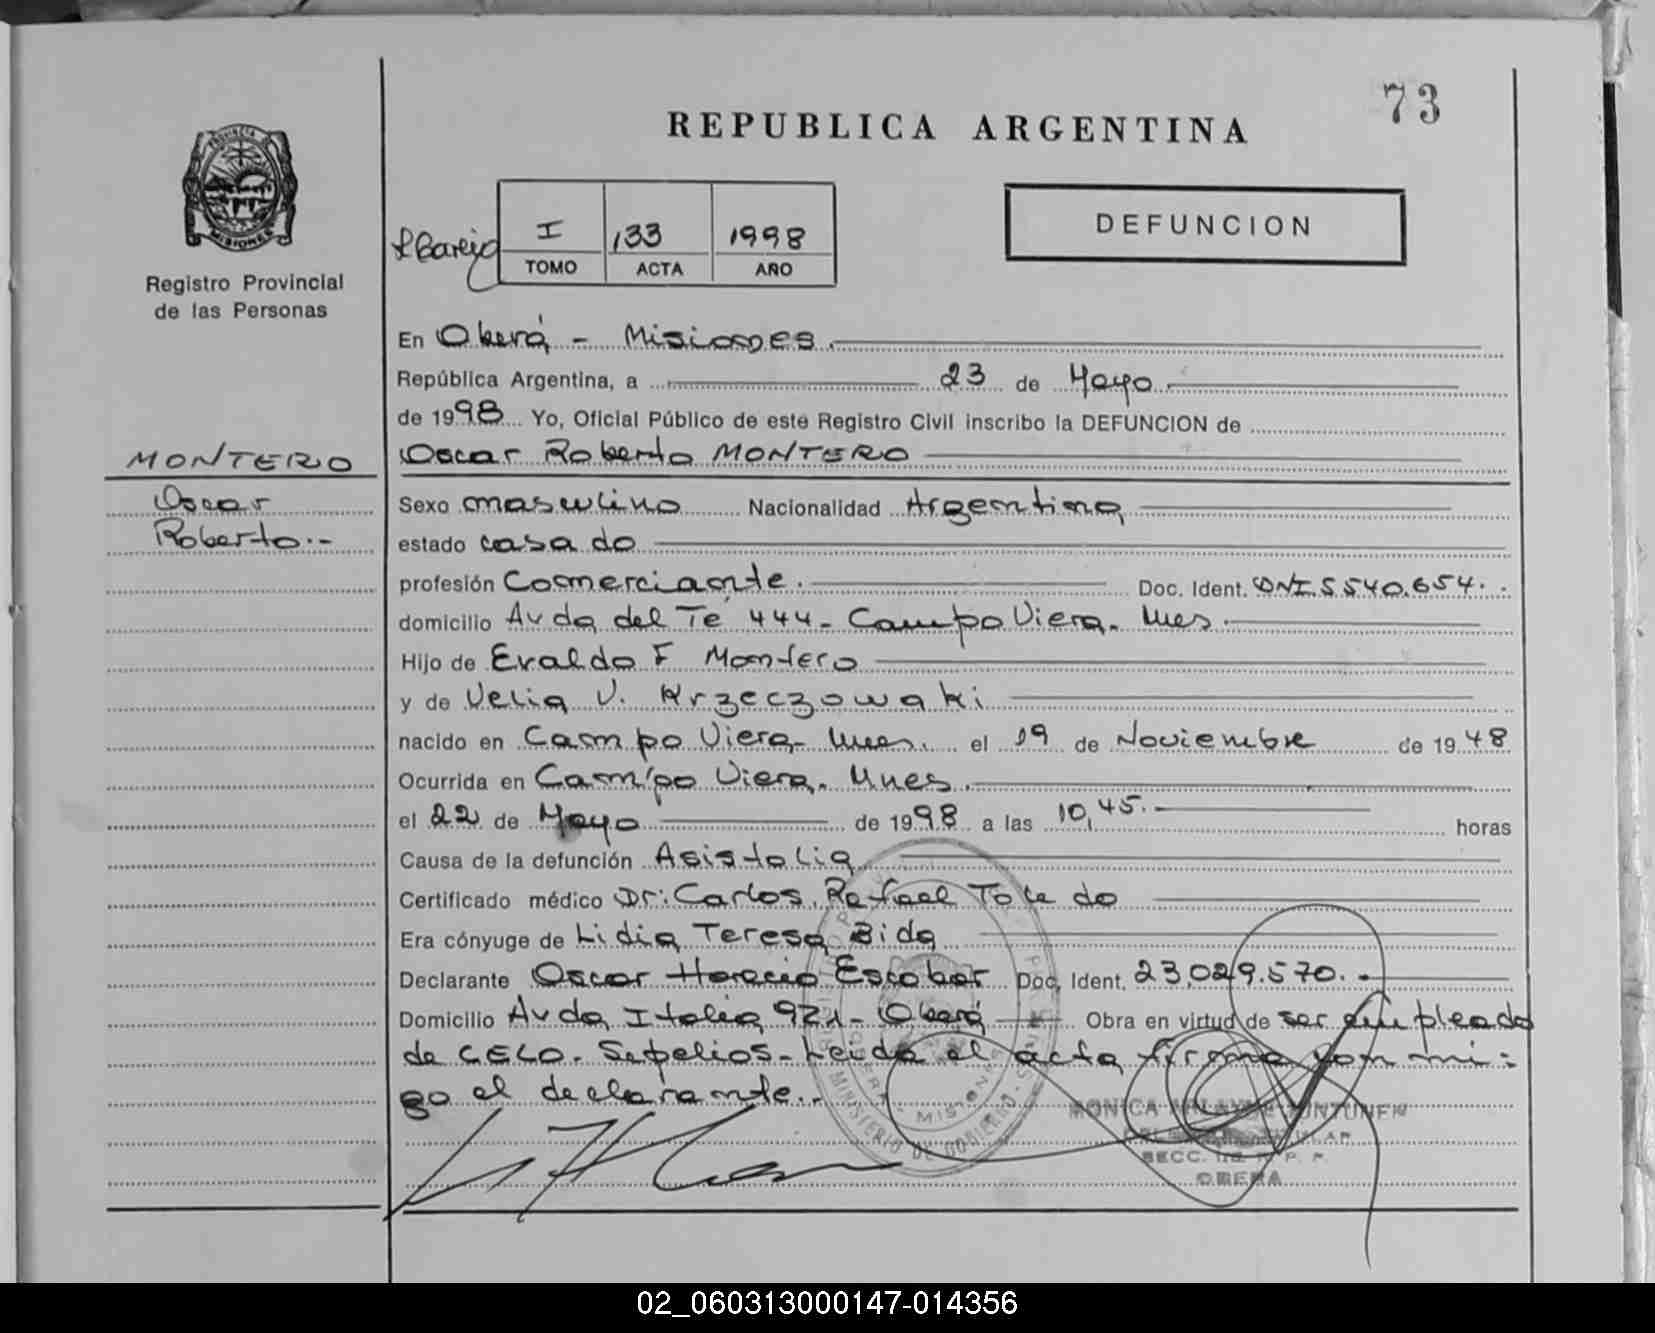 73
REPUBLICA ARGENTINA
PROVINCIA
MISIONES
Registro Provincial
de las Personas
I 133 1998
TOMO ACTA AÑO
DEFUNCION
En Oberá - Misiones.
República Argentina, a 23 de Mayo
de 1998 Yo, Oficial Público de este Registro Civil inscribo la DEFUNCION de
MONTERO
Oscar
Roberto.-
Oscar Roberto MONTERO
Sexo masculino Nacionalidad Argentina
estado casado
profesión Comerciante. Doc. Ident. DNI.5540.654.
domicilio Avda del Té 444- Campo Viera- Mnes.
Hijo de Evaldo F Montero
y de Velia V. Krzeczowaki
nacido en Campo Viera- Mnes. el 19 de Noviembre de 1948
Ocurrida en Campo Viera. Mnes.
el 22 de Mayo de 1998 a las 10,45.- horas
Causa de la defunción Asistolia
Certificado médico Dr: Carlos Rafael Toledo
Era cónyuge de Lidia Teresa Bida
Declarante Oscar Horacio Escobar Doc. Ident. 23,029.570.-
Domicilio Avda Italia 921- Oberá Obra en virtud de ser empleado
de CELO. Sepelios- Leída el acta firma conmi-
go el declarante..
MINISTERIO DE GOBIERNO
MISIONES
MONICA
SECC. R. P. P.
OBERA
02_060313000147-014356